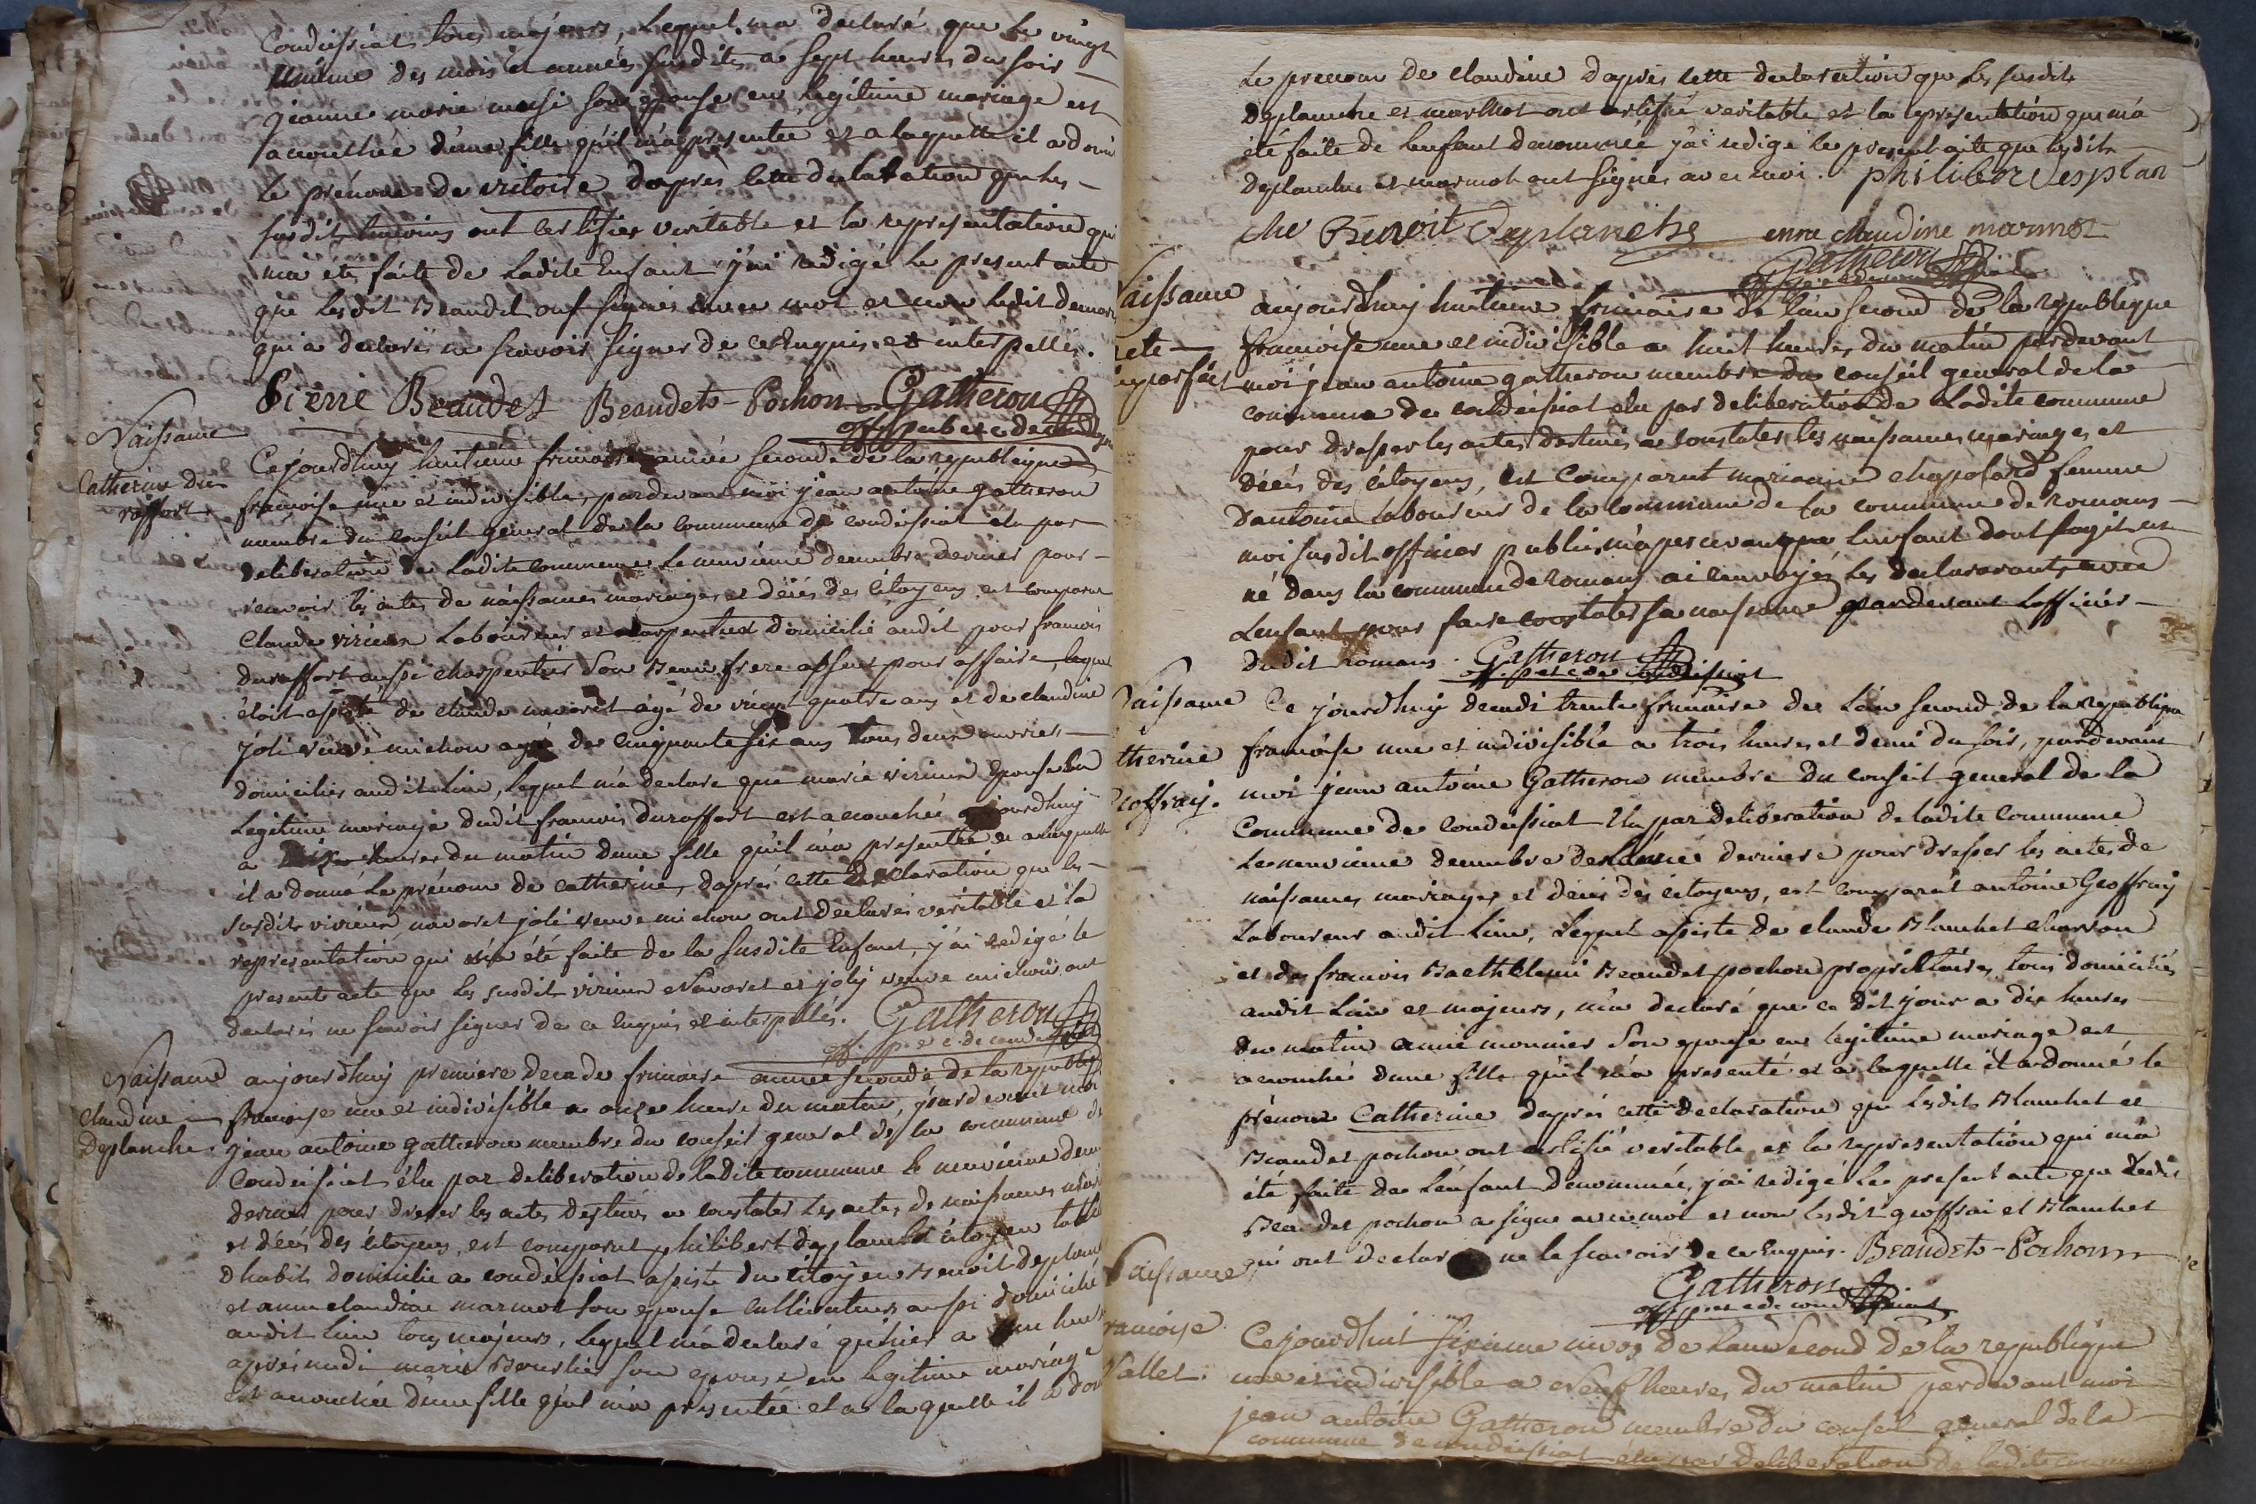 Condeissiat tous majeurs, Lequel m'a declaré que Le vingt
unième des mois et année susdites a sept heures du soir
jeanne marie son epouse en legitime mariage est
accouchée d'une fille qu'il m'a presentée et a laquelle il a donné
Le prénom de victoire d'apres cette declaration que les
susdits temoins ont certifier veritable et la representation qui
m'a été faite de Ladite Enfant j'ai redigé Le present acte
que Lesdit Beaudet ont signés avec moi et non Ledit
qui a declaré ne scavoir signer de ce Enquis et interpellés.
Pierre Beaudet Beaudet-Pochon Gatheron
off. public de
Naissance
Catherine du
raffort
Cejourdhuy huitieme frimaire année seconde de la republique
françoise une et indivisible, pardevant moi jean antoine gatheron
membre du conseil general de la commune de condeissiat élu par
deliberation de Ladite commune Le neuvieme decembre dernier pour
recevoir les actes de naissances mariages et décés des citoyens est comparu
Claude virieux Laboureur et charpentier domicilié audit pour françois
duraffort aussi charpentier son Beau frere absent pour affaire, lequel
étoit assisté de claude navoret agé de vingt quatre ans et de claudine
joli veuve michon agé de cinquante six ans tous deux
domiciliés audit Lieu, Lequel m'a declaré que marie virieux Epouse En
Legitime mariage dudit francois duraffort est accouchée aujourdhuy
a dix heures du matin d'une fille qu'il m'a presentée et a laquelle
il a donné Le prénom de catherine, d'aprés cette declaration que les
susdits virieux navoret joli veuve michon ont declarés veritable et la
representation qui m'a été faite de la susdite Enfant, j'ai redigé le
present acte que Les susdits virieux Navoret et joly veuve michon ont
declarés ne scavoir signer de ce Enquis et interpellés. Gatheron
off. p. c. de
Naissance
Claudine
Deplanche.
aujourdhuy premiere decade frimaire année seconde de la republique
françoise une et indivisible a onze heure du matin, pardevant moi
jean antoine gatheron membre du conseil general de la commune de
Condeissiat élu par deliberation de ladite commune le neuvieme
dernier pour dresser les actes destinés a constater Les actes de naissances
et décés des citoyens, est comparut philibert deplanche citoyen
d'habits domicilié a condeissiat assisté du citoyen Benoit deplanche
et anne claudine marmot son epouse cultivateurs aussi domicilié
audit Lieu tous majeurs, Lequel m'a declaré qu'hier a une heure
aprés midi marie son epouse en legitime mariage
est accouchée d'une fille qu'il m'a présentée et a laquelle il a donné
Le prenom de claudine d'aprés cette declaration que Les susdits
deplanche et marmot ont certifié veritable et la representation qui m'a
été faite de L'enfant denommée j'ai redigé le present acte que lesdits
deplanche et marmot ont signés avec moi. philiber desplan
che Benoit Deplanche enne claudine marmot
Gatheron
Naissance
acte
imparfait
aujourdhuy huitieme frimaire de l'an second de la republique
françoise une et indivisible a huit heures du matin pardevant
moi jean antoine gatheron membre du conseil general de la
commune de condeissiat élu par deliberation de Ladite commune
pour dresser les actes destinés a constater les naissances mariages et
décés des citoyens, est comparut marianne femme
D'antoine Laboureur de la commune de la commune de romans
moi susdit officier public m'apercevant que L'enfant dont s'agit est
né dans la commune de romans ai renvoyé Les declararants avec
L'enfant pour faire constater sa naissance pardevant L'officier
dudit romans. Gatheron
off. p. et c. de condeissiat
Naissance
Catherine
Geoffray.
Ce jourdhuy decadi trente frimaire de L'an second de la republique
françoise une et indivisible a trois heures et demi du soir, pardevant
moi jean antoine Gatheron membre du conseil general de la
commune de condeissiat Elu par deliberation de ladite commune
Le neuvieme decembre de L'année derniere pour dresser les actes de
naissances mariages et décés des citoyens, est comparut antoine Geoffray
Laboureur audit Lieu, Lequel assisté de claude Blanchet charron
et de francois Barthelemi Beaudet pochon propriétaires, tous domiciliés
audit Lieu et majeurs, m'a declaré que ce dit jour a dix heures
du matin anne monnier son epouse en legitime mariage est
accouchée d'une fille qu'il m'a presenté et a laquelle il a donné le
prénom Catherine d'aprés cette declaration que Lesdits Blanchet et
Beaudet pochon ont certifié veritable et la representation qui m'a
été faite de L'enfant denommée, j'ai redigé Le present acte que Ledit
Beaudet pochon a signé avec moi et non lesdit geoffrai et Blanchet
qui ont declaré ne le scavoir de ce Enquis. Beaudet-Pochon
Gatheron
off. p. et c. de condeissiat
Naissance
francoise
Vallet.
Cejourdhuit sixieme nivos de L'an second de la republique
une et indivisible a neuf heures du matin pardevant moi
jean antoine Gatheron membre du conseil general de la
commune de condeissiat élu par deliberation de ladite commune